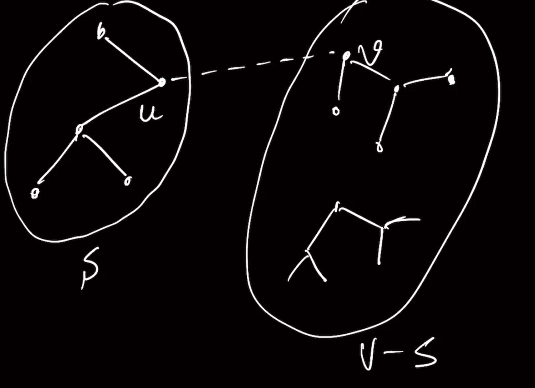 u
v
S
V - S